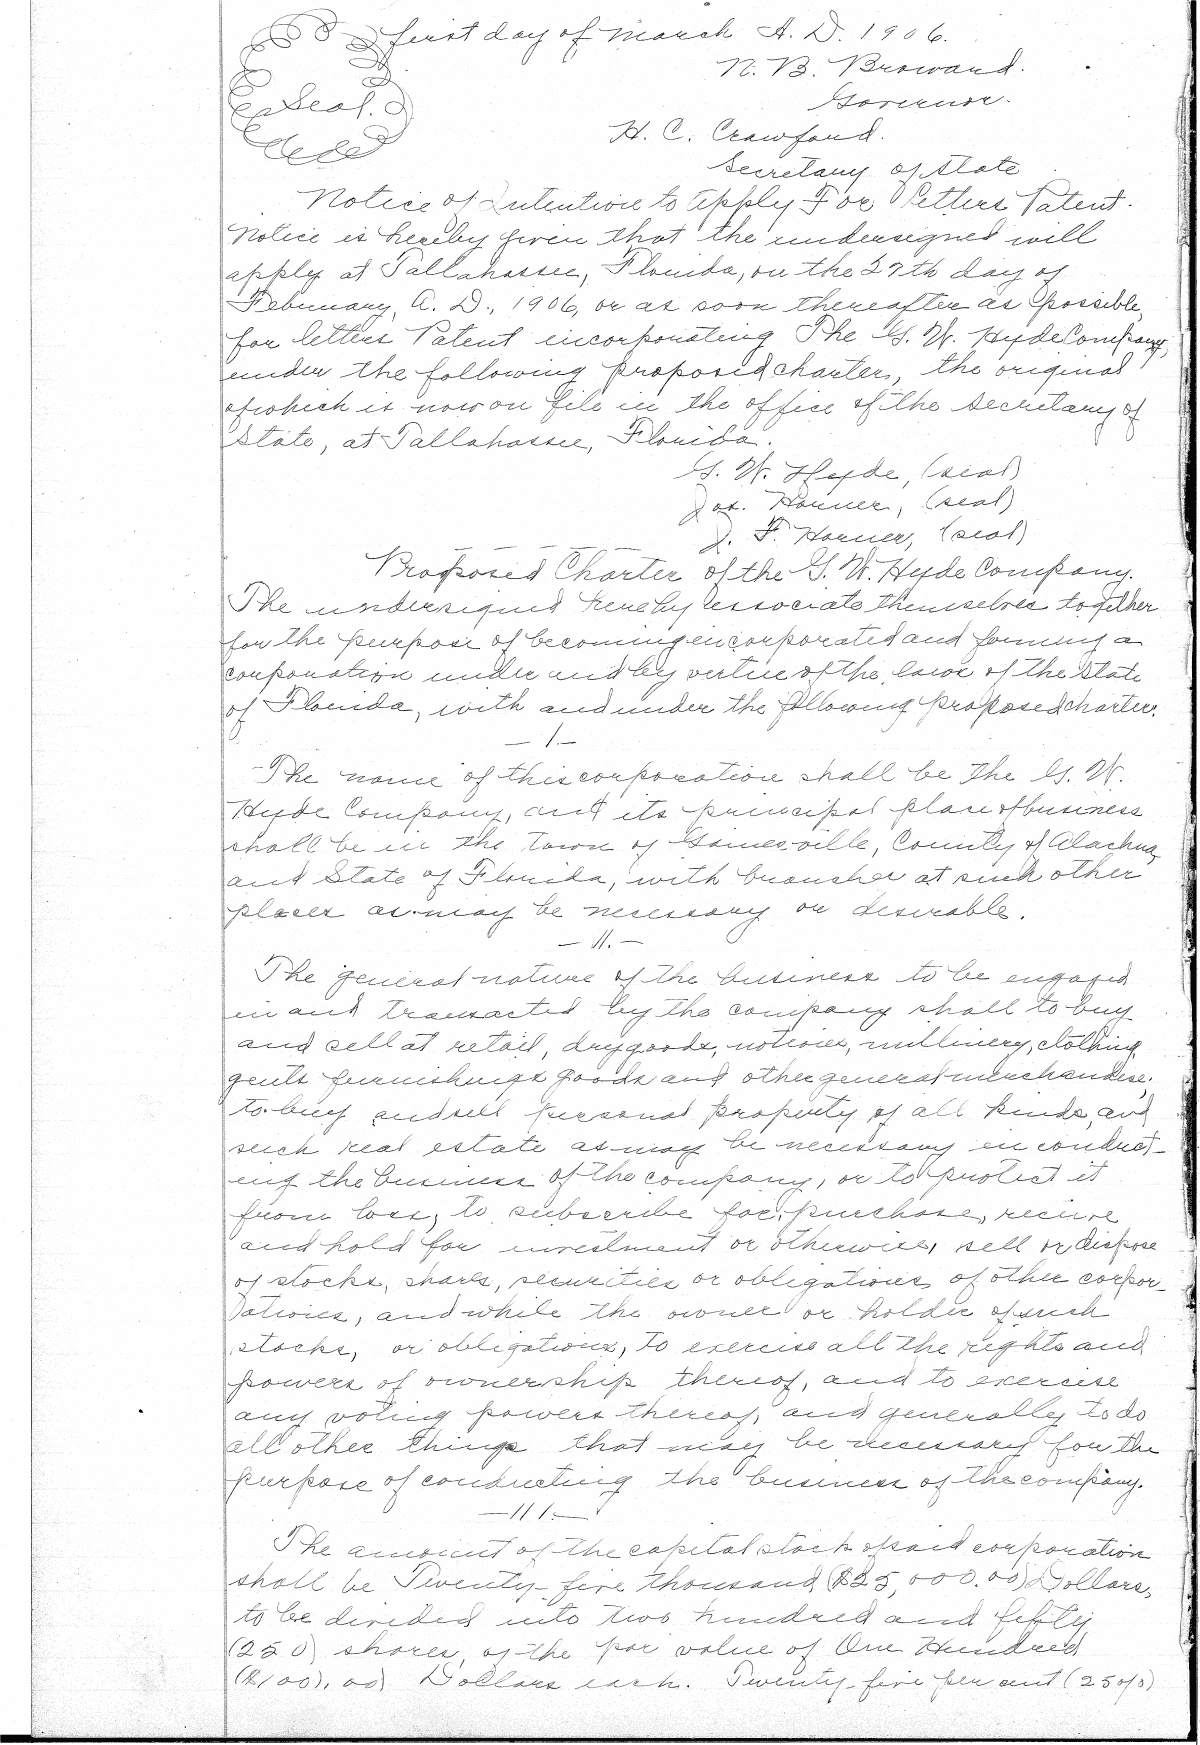 first day of March A. D. 1906.
N. B. Broward.
Governor.
Seal.
H. C. Crawford.
Secretary of State
Notice of Intention to Apply For Letters Patent.
Notice is hereby given that the undersigned will
apply at Tallahassee, Florida, on the 27th day of
February, A. D., 1906, or as soon thereafter as possible,
for letters Patent incorporating The G. W. Hyde Company,
under the following proposed charter, the original
of which is now on file in the office of the Secretary of
State, at Tallahassee, Florida.
G. W. Hyde, (seal)
Jas. Horner, (seal)
J. F. Horner, (seal)
Proposed Charter of the G. W. Hyde Company.
The undersigned hereby associate themselves together
for the purpose of becoming incorporated and forming a
corporation under and by vertue of the laws of the State
of Florida, with and under the following proposed charter.
— I. —
The name of this corporation shall be the G. W.
Hyde Company, and its principal place of business
shall be in the Town of Gainesville, County of Alachua,
and State of Florida, with branches at such other
places as may be necessary or desirable.
— II. —
The general nature of the business to be engaged
in and transacted by the company shall to buy
and sell at retail, drygoods, notions, millinery, clothing,
gents furnishings goods and other general merchandise;
to buy and sell personal property of all kinds, and
such real estate as may be necessary in conduct-
ing the business of the company, or to protect it
from loss; to subscribe for, purchase, receive
and hold for investment or otherwise, sell or dispose
of stocks, shares, securities or obligations of other corpor-
ations, and while the owner or holder of such
stocks, or obligations, to exercise all the rights and
powers of ownership thereof, and to exercise
any voting powers thereof, and generally to do
all other things that may be necessary for the
purpose of conducting the business of the company.
— III. —
The amount of the capital stock of said corporation
shall be Twenty-five thousand ($25,000.00) Dollars,
to be divided into two hundred and fifty
(250) shares, of the par value of One Hundred
($100.00) Dollars each. Twenty-five per cent (25%)